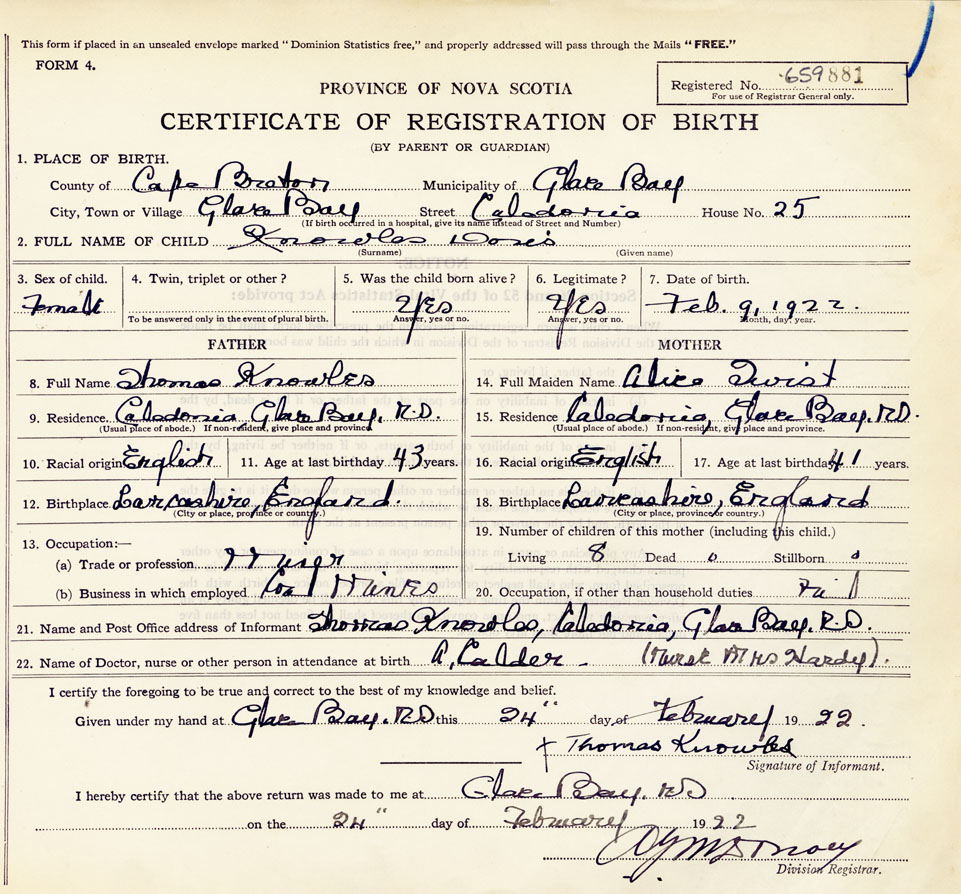 This form if placed in an unsealed envelope marked "Dominion Statistics free," and properly addressed will pass through the Mails "FREE."
FORM 4.
Registered No. 659881
For use of Registrar General only.
PROVINCE OF NOVA SCOTIA
CERTIFICATE OF REGISTRATION OF BIRTH
(BY PARENT OR GUARDIAN)
1. PLACE OF BIRTH.
County of Cape Breton Municipality of Glace Bay
City, Town or Village Glace Bay Street Caledonia House No. 25
(If birth occurred in a hospital, give its name instead of Street and Number)
2. FULL NAME OF CHILD Knowles Doris
(Surname) (Given name)
3. Sex of child. 4. Twin, triplet or other? 5. Was the child born alive? 6. Legitimate? 7. Date of birth.
Female Yes Yes Feb. 9, 1922.
To be answered only in the event of plural birth. Answer, yes or no. Answer, yes or no. Month, day, year.
FATHER MOTHER
8. Full Name Thomas Knowles 14. Full Maiden Name Alice Twist
9. Residence Caledonia, Glace Bay. R.D. 15. Residence Caledonia, Glace Bay. R.D.
(Usual place of abode.) If non-resident, give place and province. (Usual place of abode.) If non-resident, give place and province.
10. Racial origin English 11. Age at last birthday 43 years. 16. Racial origin English 17. Age at last birthday 41 years.
12. Birthplace Lancashire, England. 18. Birthplace Lancashire, England
(City or place, province or country.) (City or place, province or country.)
13. Occupation:— 19. Number of children of this mother (including this child.)
(a) Trade or profession Miner Living 8 Dead 0 Stillborn 0
(b) Business in which employed Coal Mines 20. Occupation, if other than household duties
21. Name and Post Office address of Informant Thomas Knowles, Caledonia, Glace Bay. R.D.
22. Name of Doctor, nurse or other person in attendance at birth A. Calder - (Nurse Mrs Hardy).
I certify the foregoing to be true and correct to the best of my knowledge and belief.
Given under my hand at Glace Bay. R.D this 24" day of February 1922.
Thomas Knowles
Signature of Informant.
I hereby certify that the above return was made to me at Glace Bay. RD
on the 24" day of February 1922
Division Registrar.